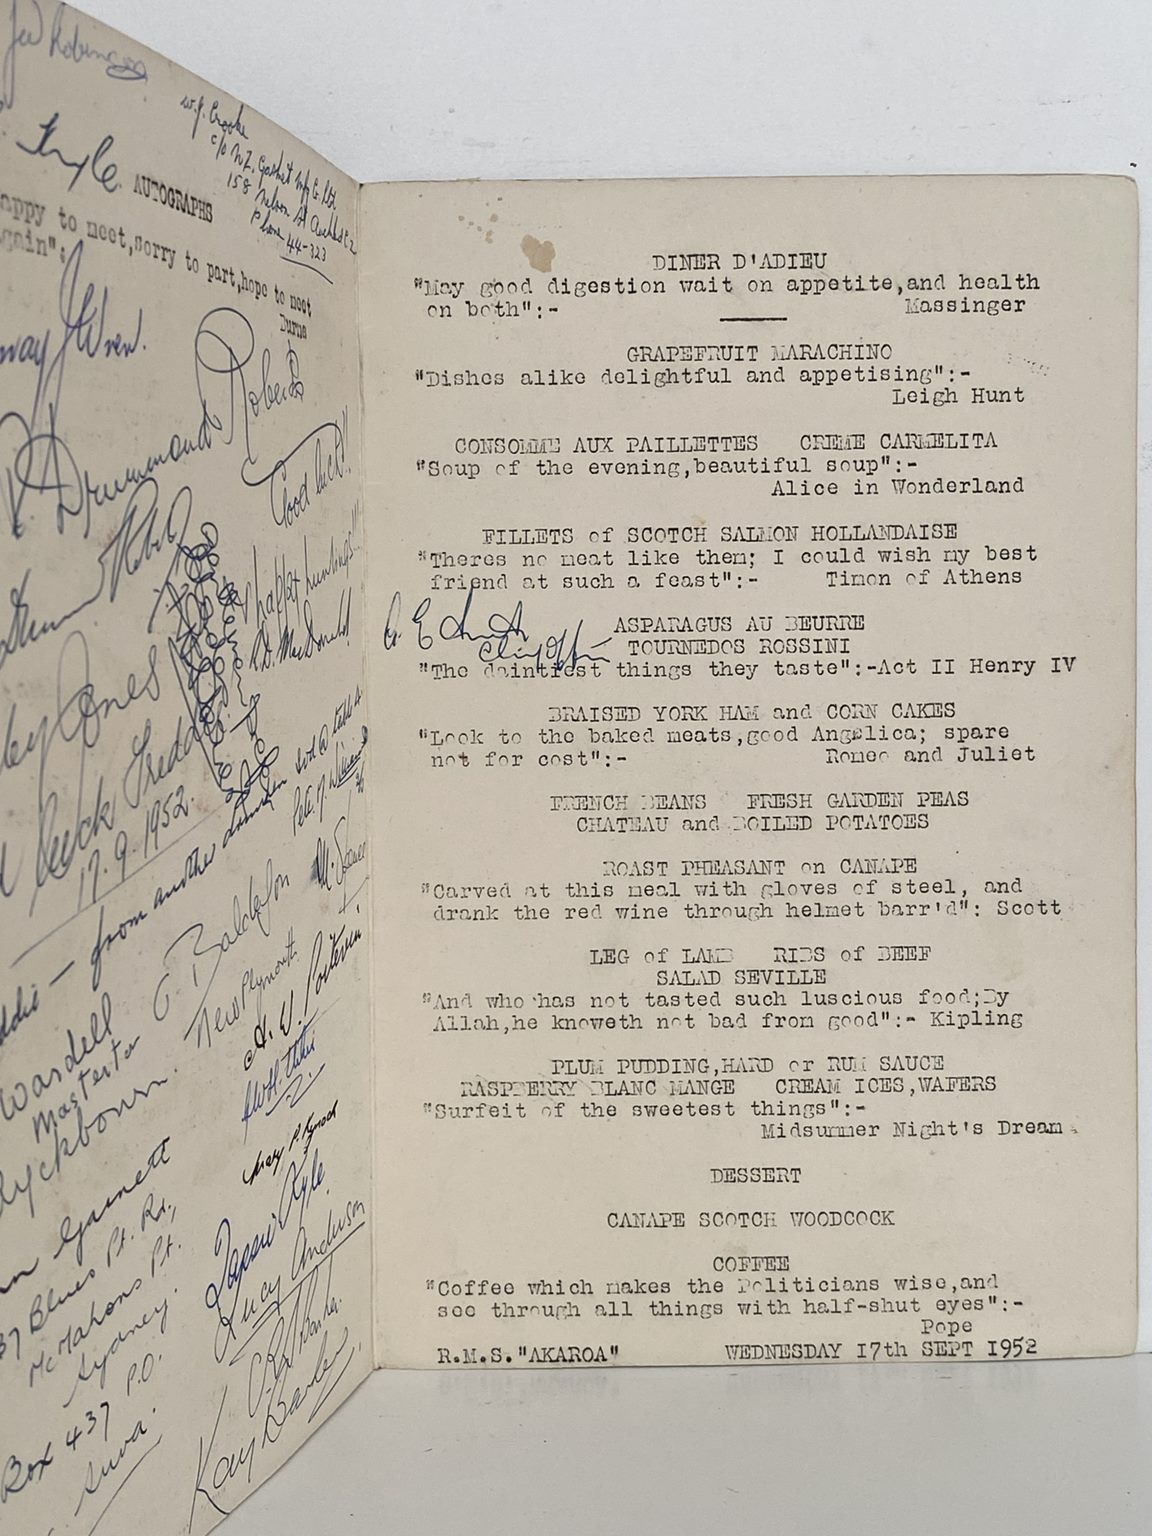 Robinson
W.J. Crooke
c/o N.Z. Gasket Mfg Co. Ltd
158 Nelson St Auckland C2
Phone 44-323
Kyle.
AUTOGRAPHS
appy to meet,sorry to part,hope to meet
gain":
Burns
Wren.
Drummond Roberts
Good luck!!
happy huntings!!!
R.D. MacDonald
Jones
Luck Freddie
17.9.1952.
from another drunken sod @ table 4
Balderson
New Plymouth
Wardell
Masterton
Ryckborn.
Garnett
37 Blues Pt. Rd.,
McMahons Pt.
Sydney.
P.O.
Box 437
Suva.
Jessie Kyle.
Lucy Anderson
Kay Barber
DINER D'ADIEU
"May good digestion wait on appetite,and health
on both":- Massinger
GRAPEFRUIT MARACHINO
"Dishes alike delightful and appetising":-
Leigh Hunt
CONSOMME AUX PAILLETTES CREME CARMELITA
"Soup of the evening,beautiful soup":-
Alice in Wonderland
FILLETS of SCOTCH SALMON HOLLANDAISE
"Theres no meat like them; I could wish my best
friend at such a feast":- Timon of Athens
G. E. Smith
ASPARAGUS AU BEURRE
TOURNEDOS ROSSINI
"The daintiest things they taste":-Act II Henry IV
BRAISED YORK HAM and CORN CAKES
"Look to the baked meats,good Angelica; spare
not for cost":- Romeo and Juliet
FRENCH BEANS FRESH GARDEN PEAS
CHATEAU and BOILED POTATOES
ROAST PHEASANT on CANAPE
"Carved at this meal with gloves of steel, and
drank the red wine through helmet barr'd": Scott
LEG of LAMB RIBS of BEEF
SALAD SEVILLE
"And who has not tasted such luscious food;By
Allah,he knoweth not bad from good":- Kipling
PLUM PUDDING,HARD or RUM SAUCE
RASPBERRY BLANC MANGE CREAM ICES,WAFERS
"Surfeit of the sweetest things":-
Midsummer Night's Dream.
DESSERT
CANAPE SCOTCH WOODCOCK
COFFEE
"Coffee which makes the Politicians wise,and
see through all things with half-shut eyes":-
Pope
R.M.S."AKAROA" WEDNESDAY 17th SEPT 1952